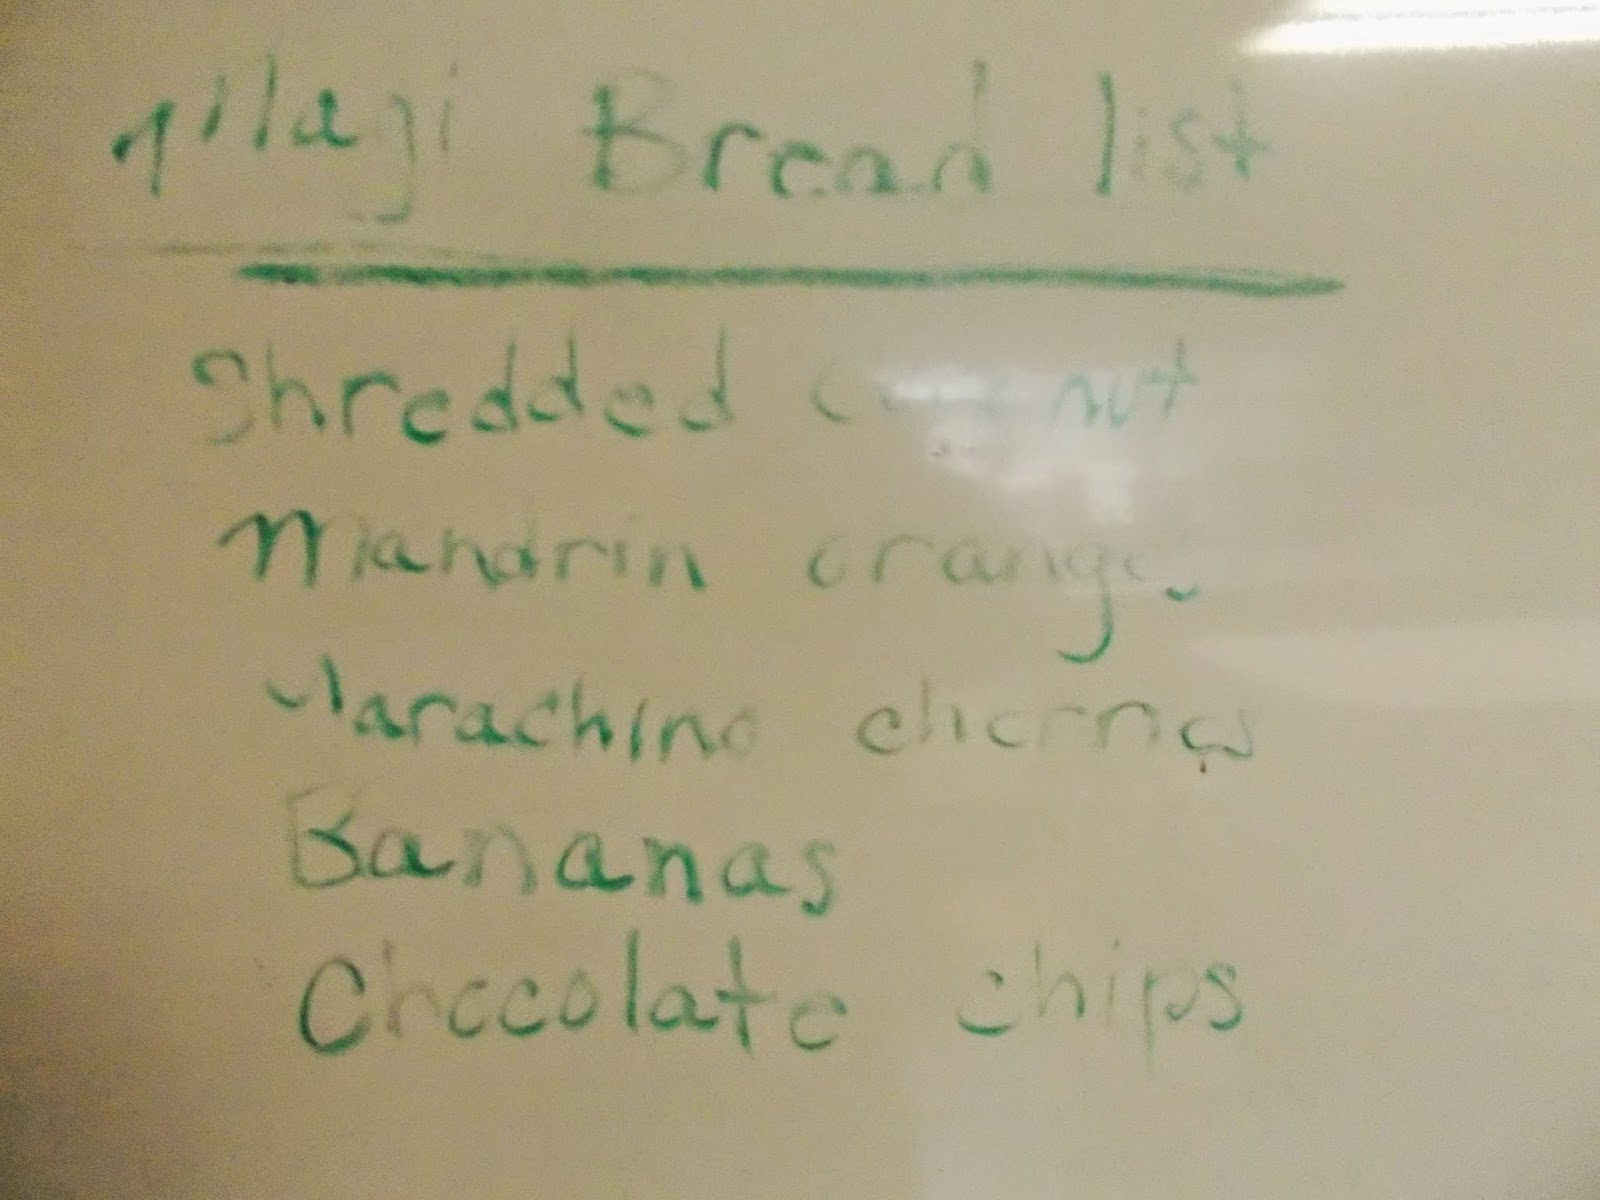 Bread list
Shredded coconut
Mandrin orange
Marachino cherries
Bananas
Chocolate chips